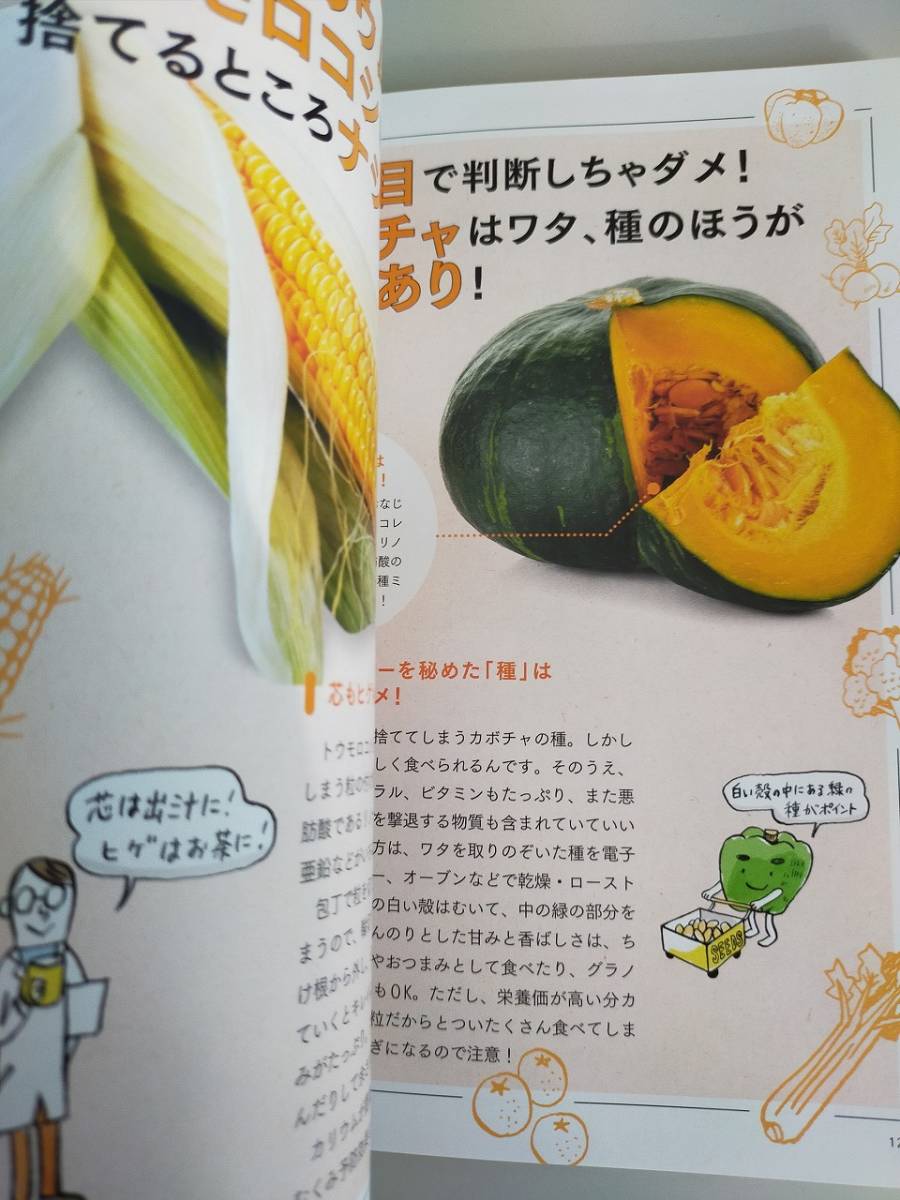 モロコシ
捨てるところ
芯もヒゲ
トウモロコ
しまう粒の
肪酸である
亜鉛などが
包丁で粒を
まうので、
け根から外し
ていくとキレ
みがたっぷり
んだりして
カリウムが
むくみ予防
芯は出汁に!
ヒゲはお茶に!
目で判断しちゃダメ!
チャはワタ、種のほうが
あり!
は
!
なじ
コレ
リノ
酸の
種ミ
!
ーを秘めた「種」は
メ!
捨ててしまうカボチャの種。しかし
しく食べられるんです。そのうえ、
ラル、ビタミンもたっぷり、また悪
を撃退する物質も含まれていていい
方は、ワタを取りのぞいた種を電子
ー、オーブンなどで乾燥・ロースト
の白い殻はむいて、中の緑の部分を
んのりとした甘みと香ばしさは、ち
やおつまみとして食べたり、グラノ
もOK。ただし、栄養価が高い分カ
粒だからとついたくさん食べてしま
ぎになるので注意!
白い殻の中にある緑の
種がポイント
SEEDS
12